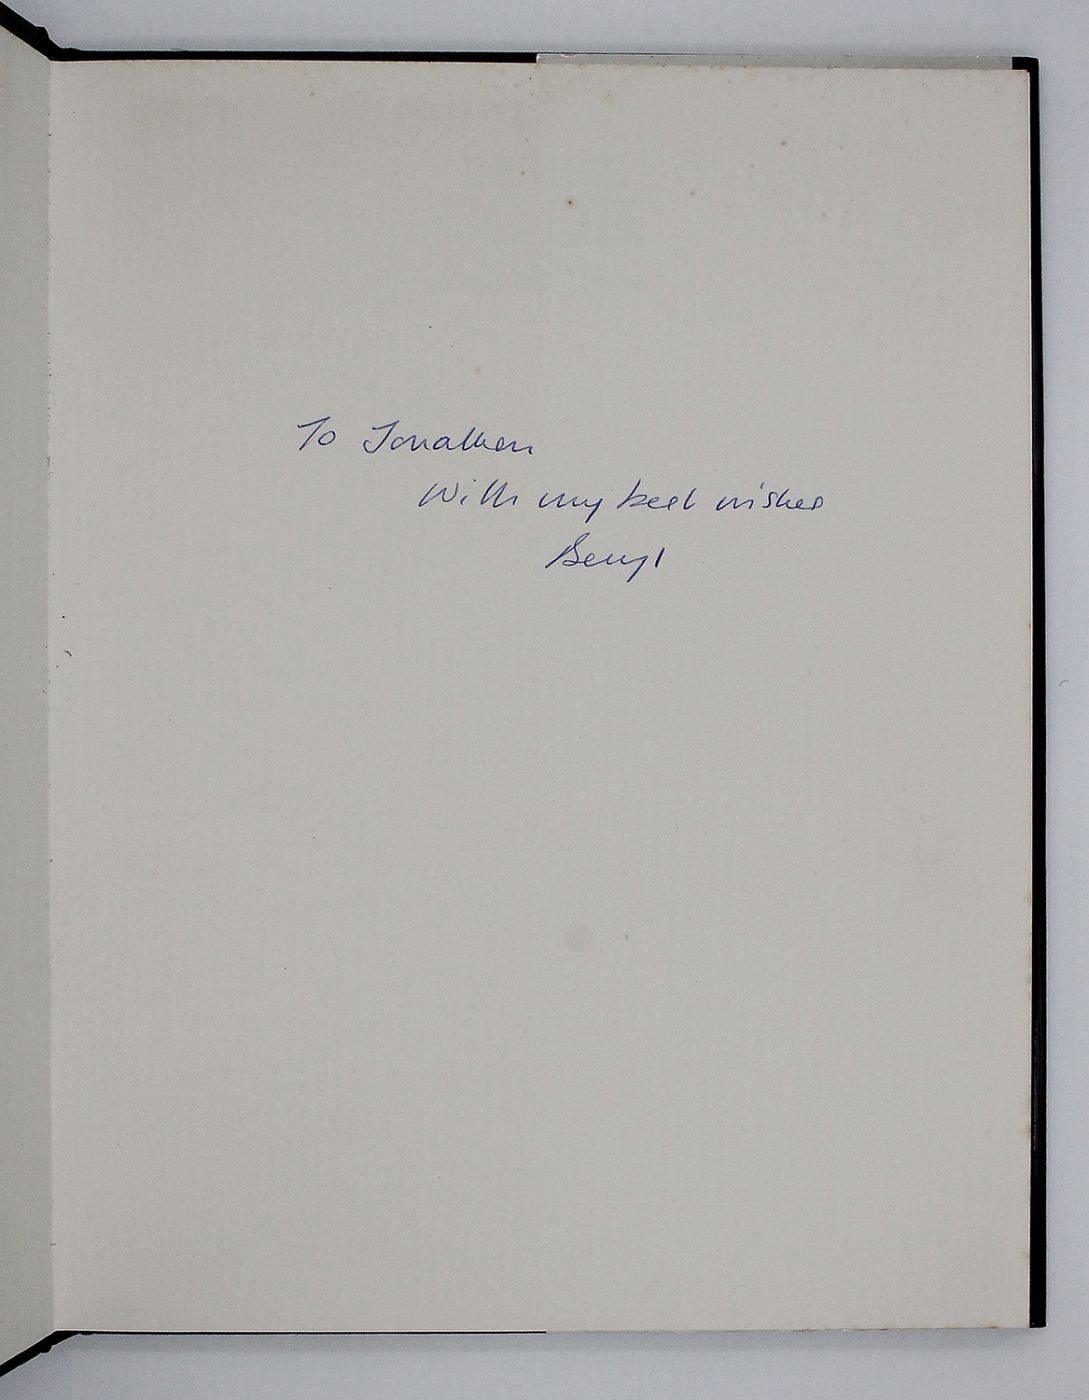 To Jonathan
With my best wishes
Beryl